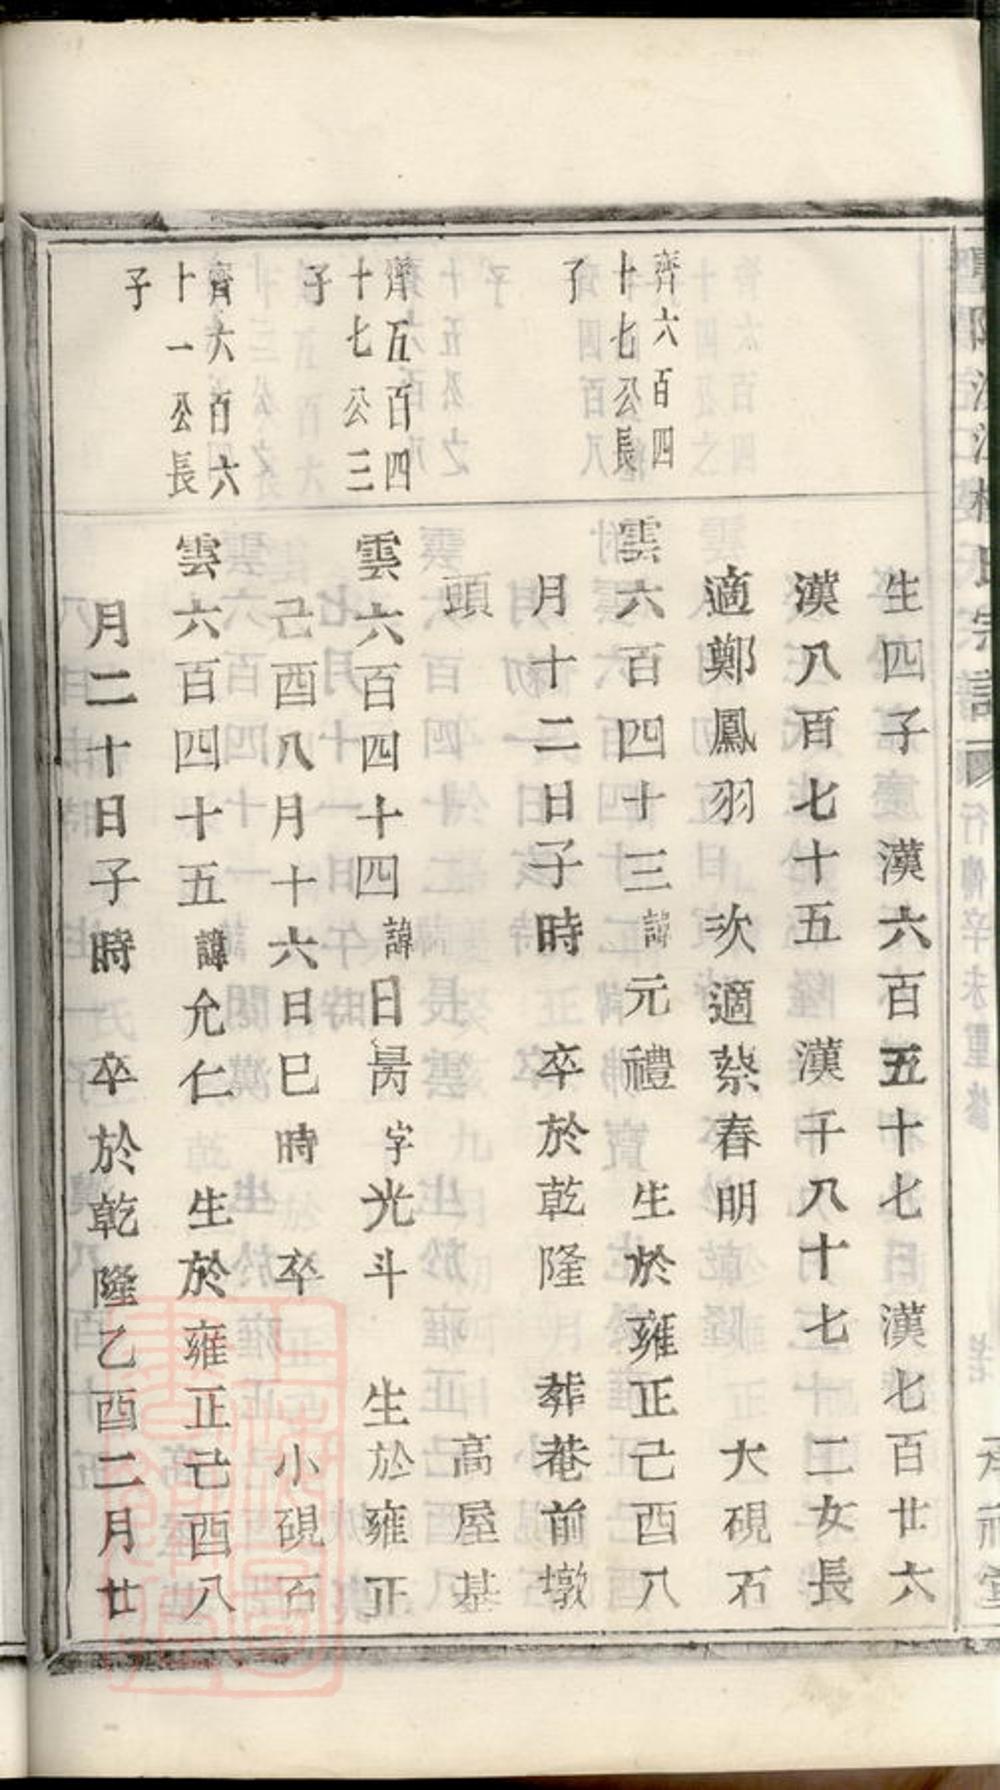 生四子　漢六百五十七　漢七百廿六
漢八百七十五　漢千八十七　二女長
適鄭鳳羽　次適蔡春明　大硯石
齊六百四
十七公長
子
雲六百四十三諱元禮　生於雍正己酉八
月十二日子時　卒於乾隆　葬菴前墩
頭　高屋基
齊五百四
十七公三
子
雲六百四十四諱日昺字光斗　生於雍正
己酉八月十六日巳時　卒　小硯石
齊六百六
十一公長
子
雲六百四十五諱允仁　生於雍正己酉八
月二十日子時　卒於乾隆乙酉二月廿